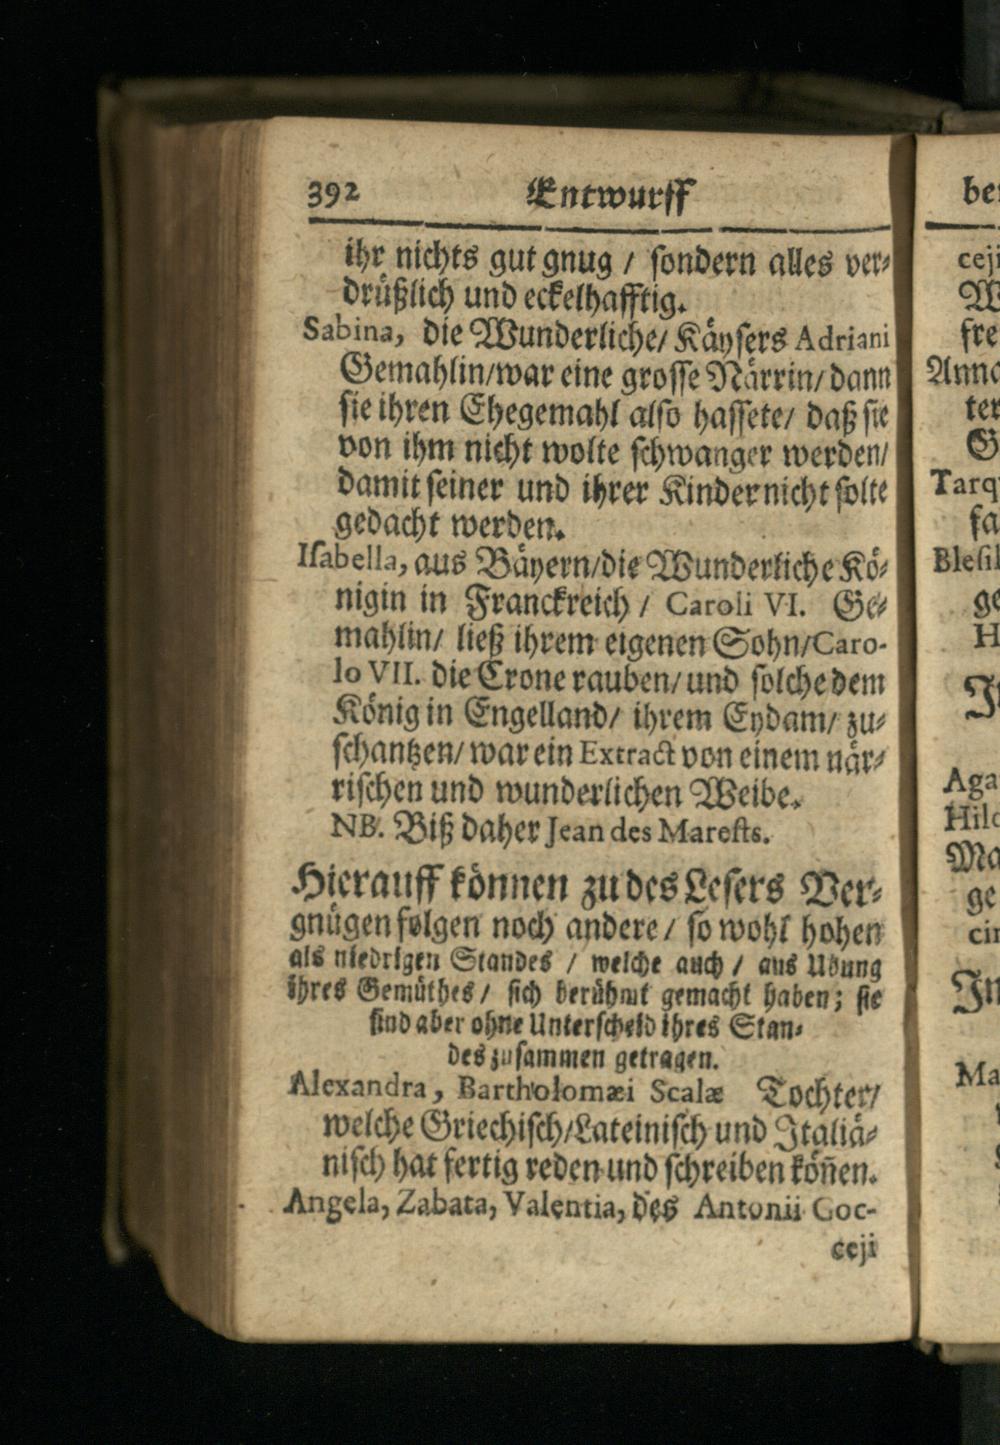 392 Entwurff
ihr nichts gut gnug / sondern alles ver⸗
drüßlich und eckelhafftig.
Sabina, die Wunderliche/ Käysers Adriani
Gemahlin/war eine grosse Närrin/ dann
sie ihren Ehegemahl also hassete/ daß sie
von ihm nicht wolte schwanger werden/
damit seiner und ihrer Kinder nicht solte
gedacht werden.
Isabella, aus Bäyern/die Wunderliche Kö⸗
nigin in Franckreich / Caroli VI. Ge⸗
mahlin/ ließ ihrem eigenen Sohn/Caro-
lo VII. die Crone rauben/ und solche dem
König in Engelland/ ihrem Eydam/ zu⸗
schantzen/ war ein Extract von einem när⸗
rischen und wunderlichen Weibe.
NB. Biß daher Jean des Marests.
Hierauff können zu des Lesers Ver⸗
gnügen folgen noch andere / so wohl hohen
als niedrigen Standes / welche auch / aus Ubung
ihres Gemüthes / sich berühmt gemacht haben; sie
sind aber ohne Unterscheid ihres Stan⸗
des zusammen getragen.
Alexandra, Bartholomæi Scalæ Tochter/
welche Griechisch/Lateinisch und Italiä⸗
nisch hat fertig reden und schreiben köñen.
Angela, Zabata, Valentia, des Antonii Coc-
ceji
be
ceji
W
fre
Anna
ter
G
Tarq
fa
Blesil
ge
H
Aga
Hild
Ma
ge
cin
In
Ma